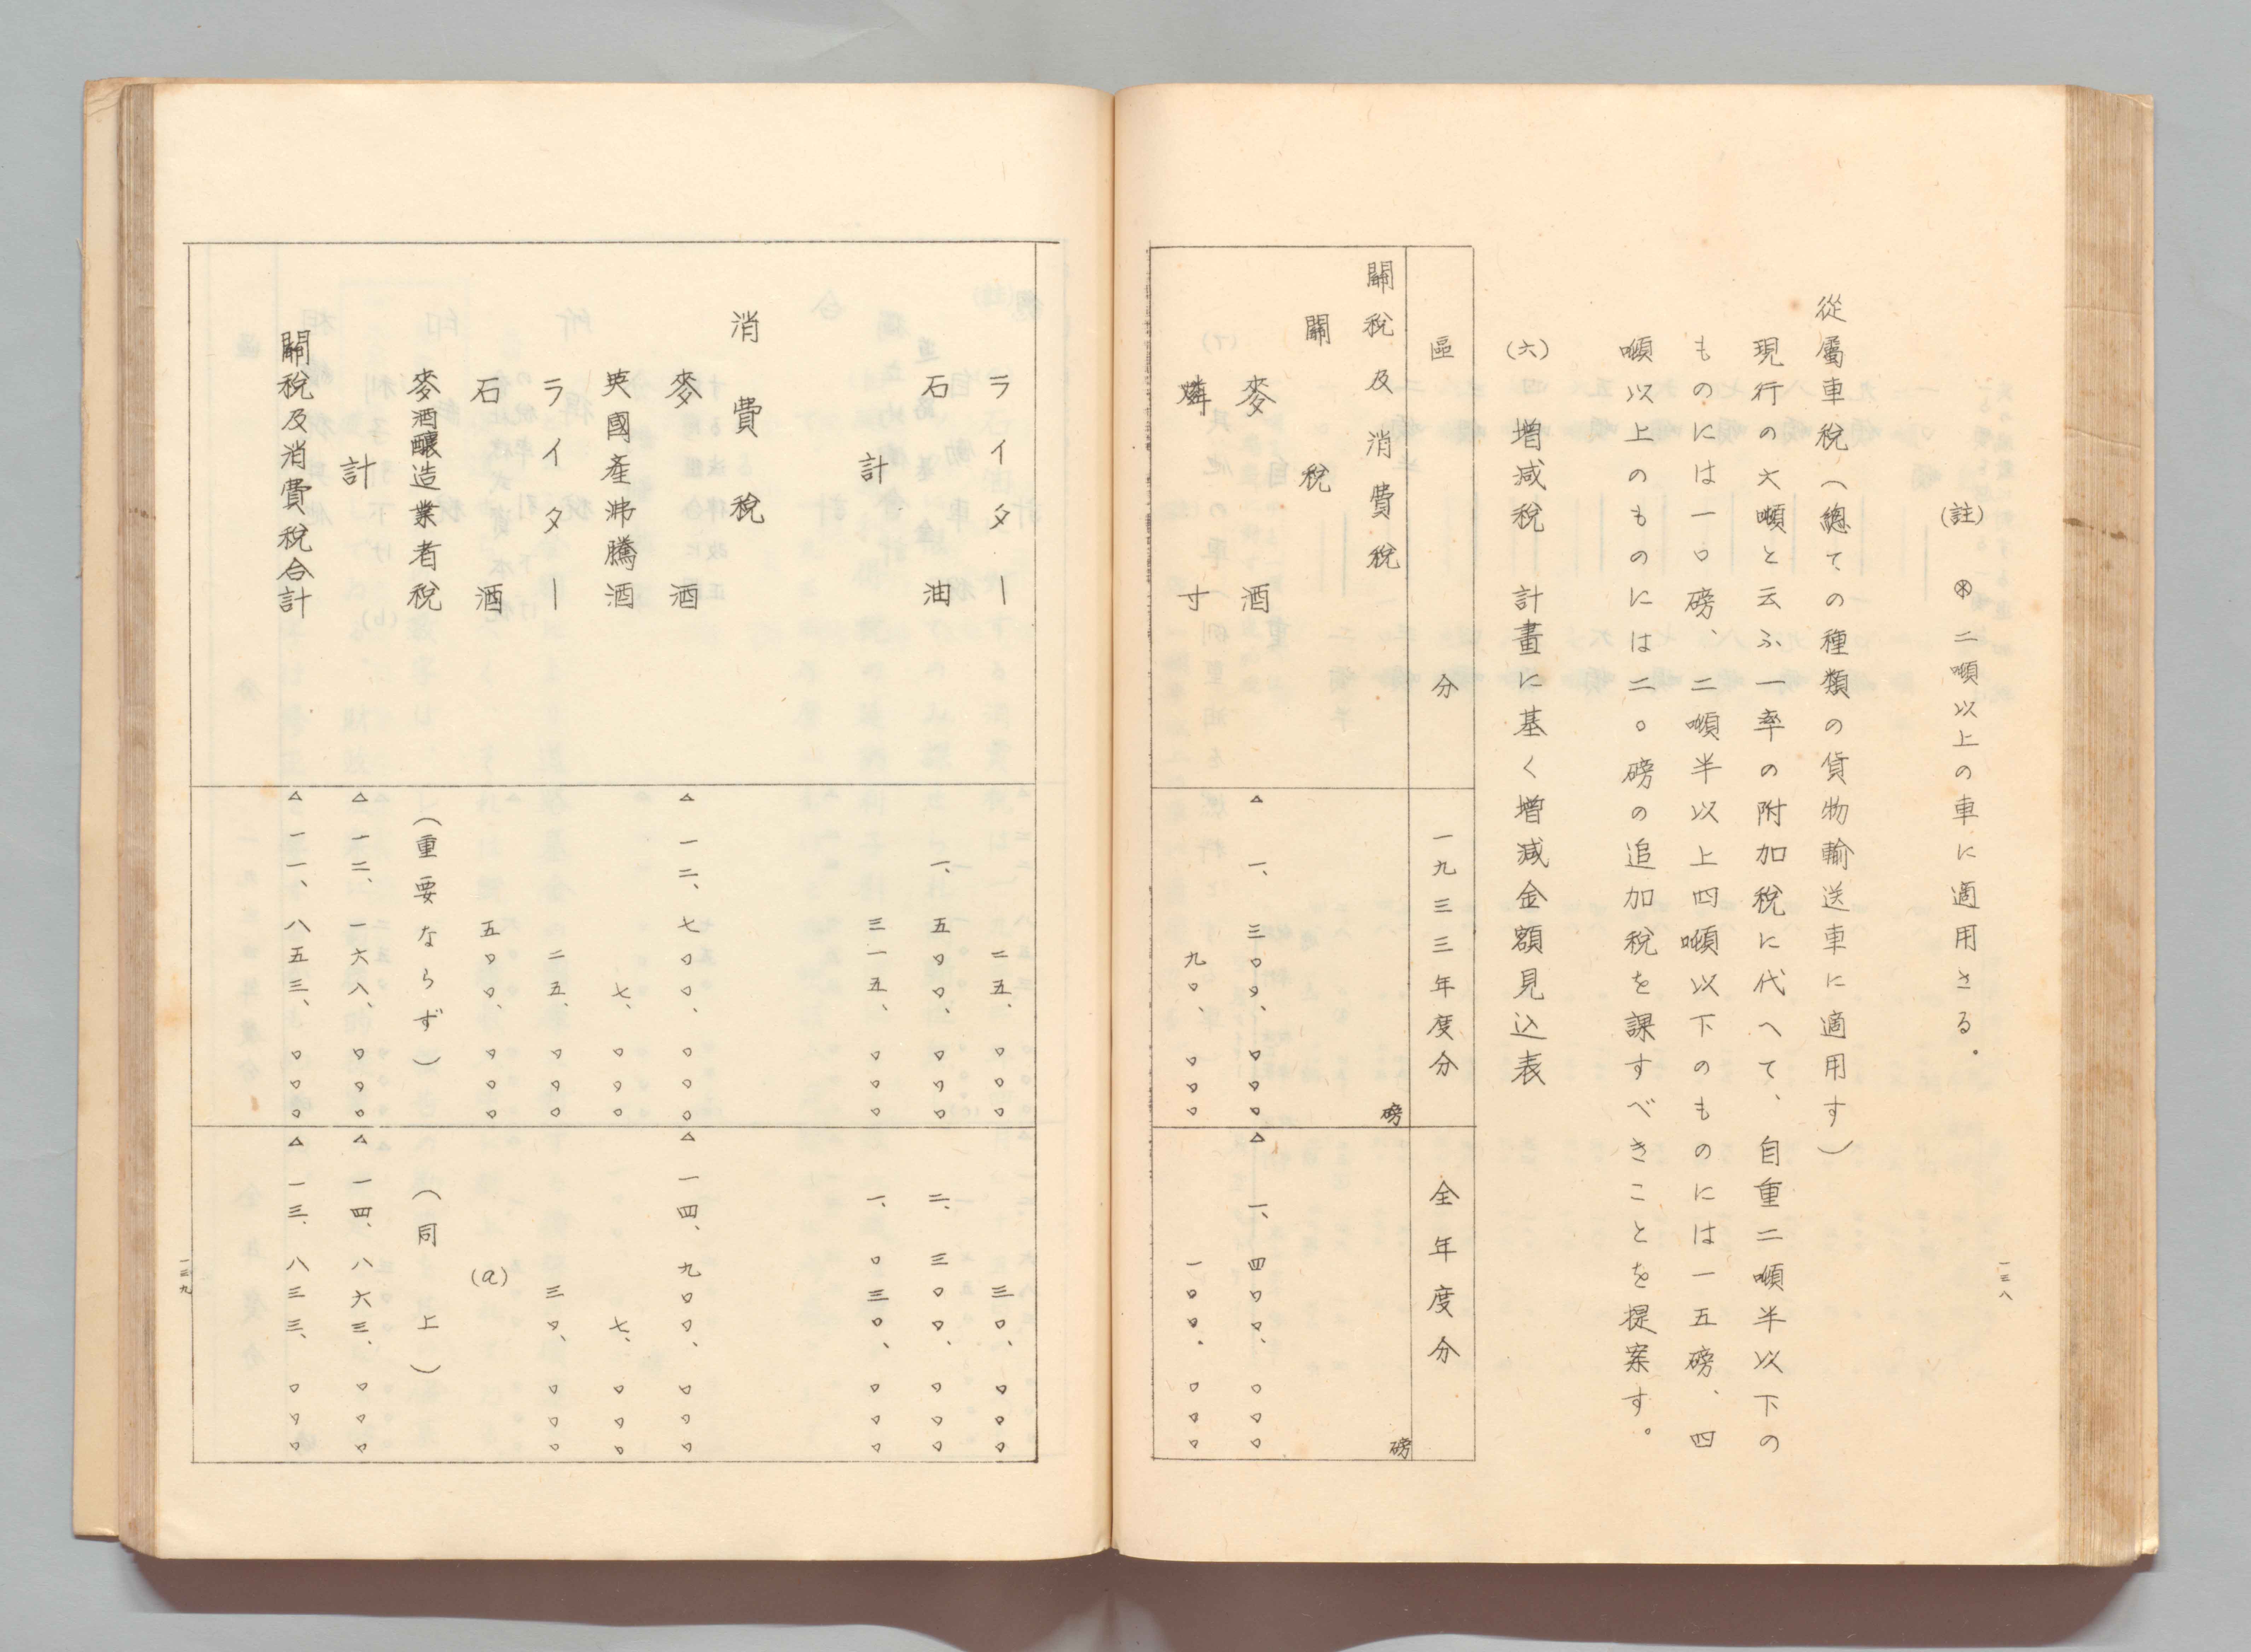 (註) ⊛ 二噸以上の車に適用さる。
從屬車税（總ての種類の貨物輸送車に適用す）
現行の大噸と云ふ一率の附加税に代へて、自重二噸半以下の
ものには一〇磅、二噸半以上四噸以下のものには一五磅、四
噸以上のものには二〇磅の追加税を課すべきことを提案す。
(六) 増減税 計畫に基く増減金額見込表
區 分 一九三三年度分 全年度分
關税及消費税 磅 磅
關 税
麥 酒 △ 一、三〇〇、〇〇〇 △ 一、四〇〇、〇〇〇
燐 寸 九〇、〇〇〇 一〇〇、〇〇〇
一三八
ライター 二五、〇〇〇 三〇、〇〇〇
石 油 一、五〇〇、〇〇〇 二、三〇〇、〇〇〇
計 三一五、〇〇〇 一、〇三〇、〇〇〇
消 費 税
麥 酒 △ 一二、七〇〇、〇〇〇 △ 一四、九〇〇、〇〇〇
英國産沸騰酒 七、〇〇〇 七、〇〇〇
ライター 二五、〇〇〇 三〇、〇〇〇
石 酒 五〇〇、〇〇〇 (a)
麥酒釀造業者税 （重要ならず） （同 上）
計 △ 一二、一六八、〇〇〇 △ 一四、八六三、〇〇〇
關税及消費税合計 △ 一一、八五三、〇〇〇 △ 一三、八三三、〇〇〇
一三九